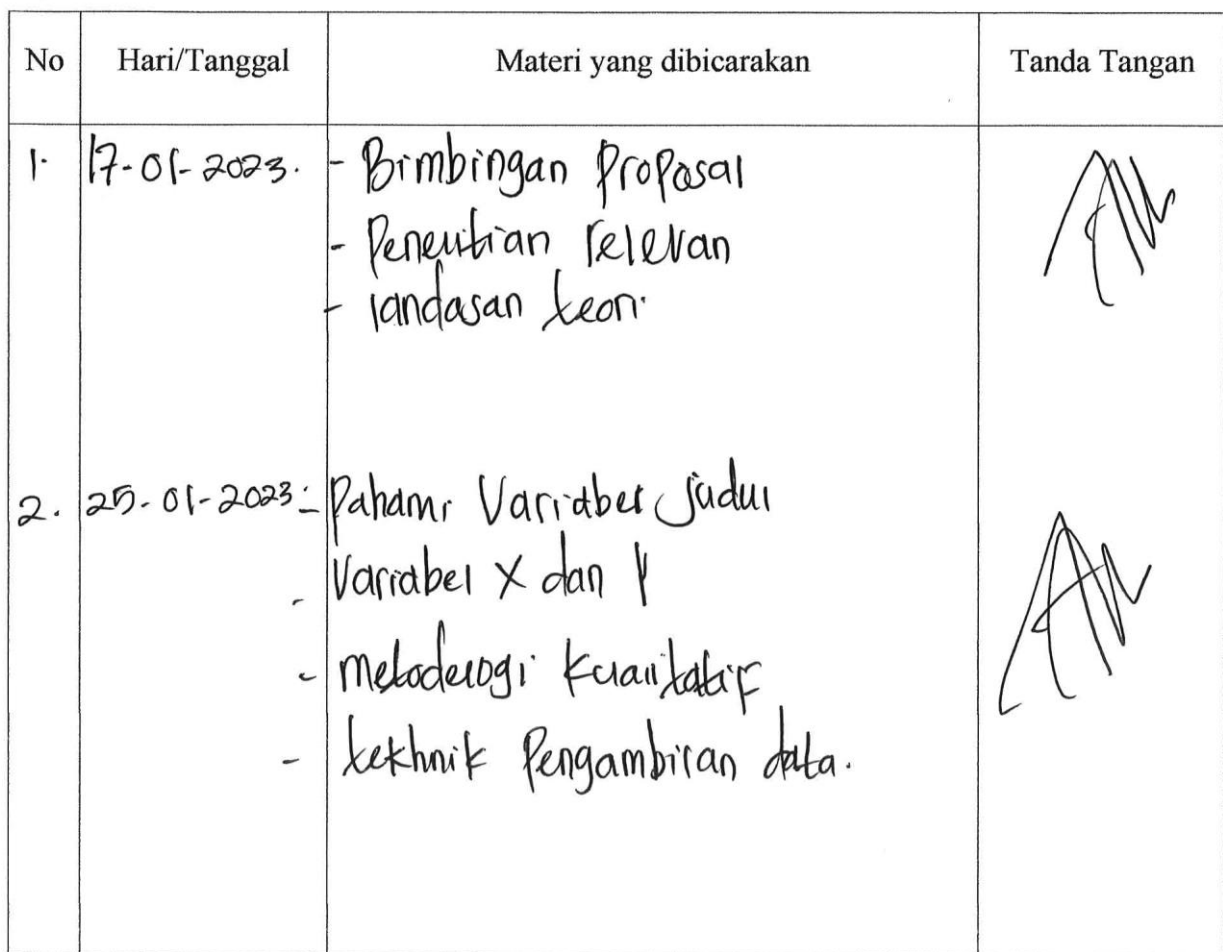 No Hari/Tanggal Materi yang dibicarakan Tanda Tangan
1. 17-01-2023. - Bimbingan Proposal
- Penelitian relevan
- landasan teori
2. 25-01-2023 - Pahami Variabel judul
- Variabel X dan Y
- metodelogi kuantitatif
- tekhnik Pengambilan data.